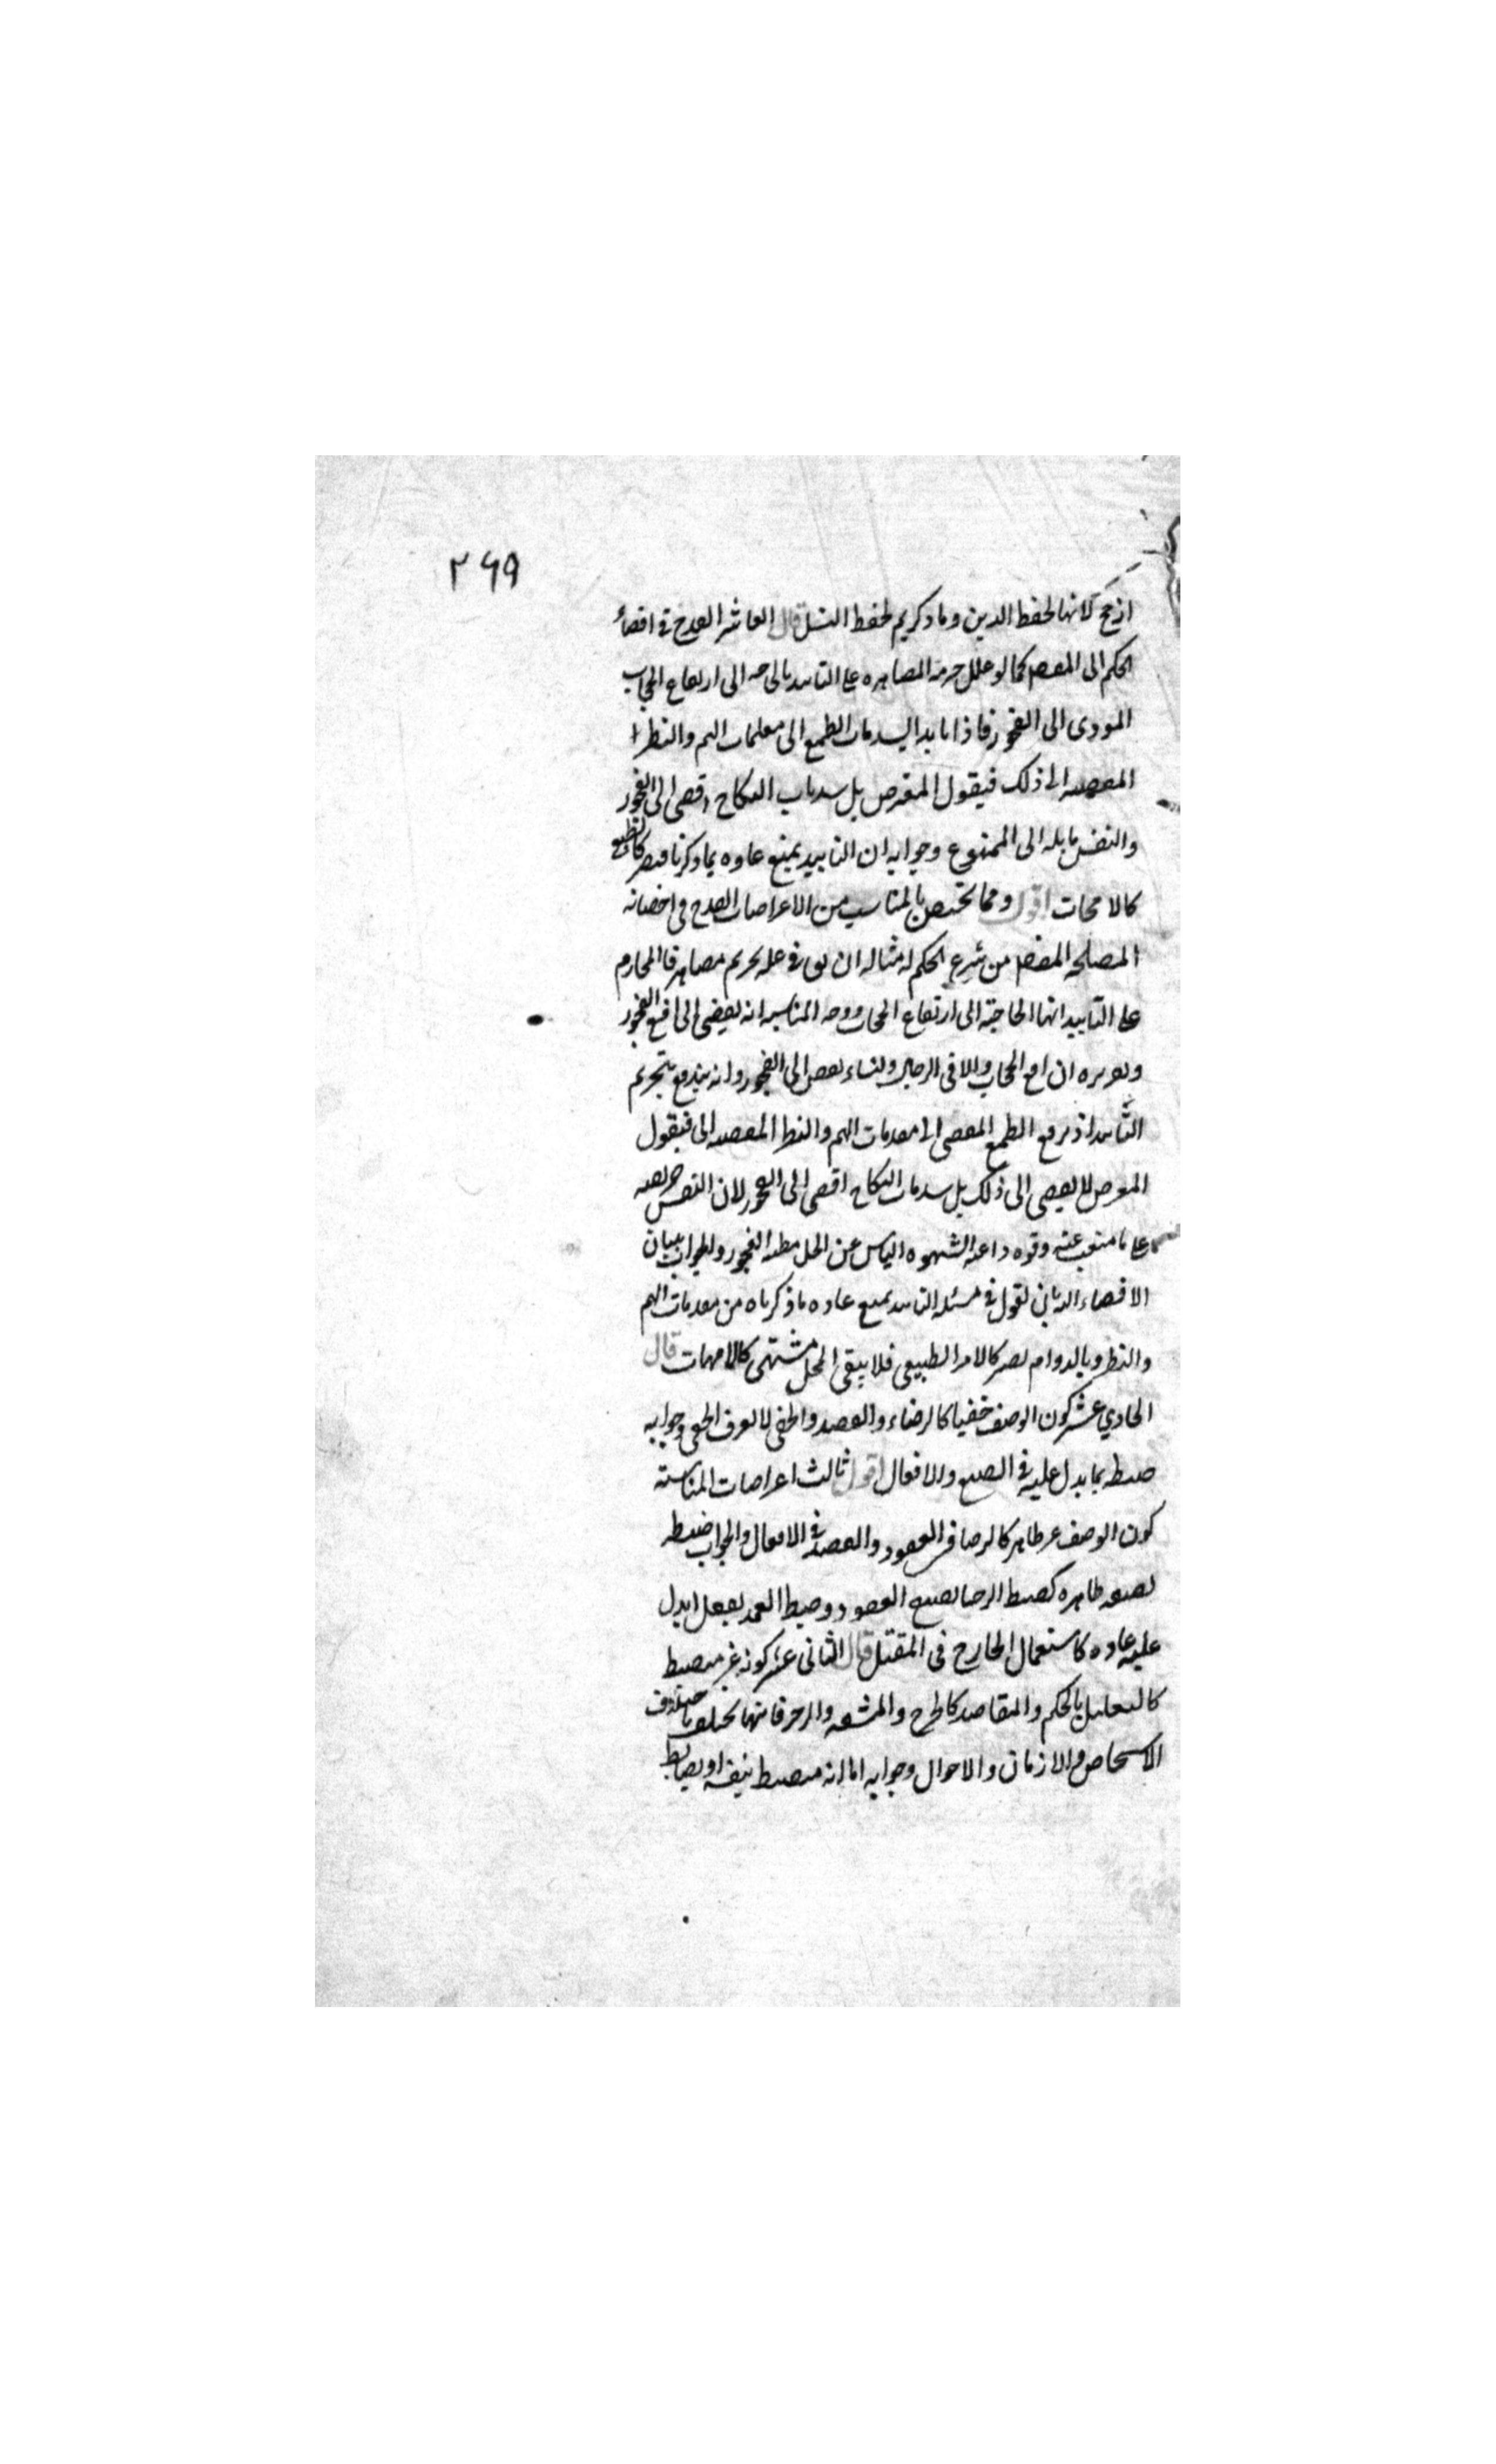 ٢٦٩
ارجح لانها لحفظ الدين وما ذكرتم لحفظ النسل قال العاشر القدح في افضاء
الحكم الى المقصود كما لو علل حرمة المصاهرة على التابيد بالحاجة الى ارتفاع الحجاب
المودى الى الفجور فاذا تابد انسد باب الطمع الى مقدمات الهم والنظر
المفضية الى ذلك فيقول المعترض بل سد باب النكاح افضى الى الفجور
والنفس مايلة الى الممنوع وجوابه ان التابيد يمنع عادة بما ذكرنا فيصير كالطبع
كالامهات اقول ومما يختص بالمناسب من الاعتراضات القدح في افضائه
المصلحة المقصودة من شرع الحكم له مثاله ان يقال في علة تحريم مصاهرة المحارم
على التابيد انها الحاجة الى ارتفاع الحجاب ووجه المناسبة انه يفضى الى رفع الفجور
وتقريره ان رفع الحجاب وتلاقى الرجال والنساء يفضى الى الفجور وانه يندفع بتحريم
التابيد اذ يرفع الطمع المفضى الى مقدمات الهم والنظر المفضية الى فيقول
المعترض لا يفضى الى ذلك بل سد باب النكاح افضى الى الفجور لان النفس حريصة
على ما منعت عنه وقوة داعية الشهوة مع الياس عن الحل مظنة الفجور والجواب ببيان
الافضاء اليه بان نقول في مسئلة التابيد يمنع عادة ما ذكرناه من مقدمات الهم
والنظر وبالدوام يصير كالامر الطبيعي فلا يبقى المحل مشتهى كالامهات قال
الحادي عشر كون الوصف خفيا كالرضاء والقصد والخفي لا يعرف الخفي وجوابه
ضبطه بما يدل عليه في الصيغ والافعال اقول ثالث اعتراضات المناسبة
كون الوصف غير ظاهر كالرضا في العقود والقصد في الافعال والجواب ضبطه
بصفة ظاهرة كضبط الرضا بصيغ العقود وضبط العمد بفعل يدل
عليه عادة كاستعمال الجارح في المقتل قال الثاني عشر كونه غير منضبط
كالتعليل بالحكم والمقاصد كالحرج والمشقة والزجر فانها تختلف باختلاف
الاشخاص والازمان والاحوال وجوابه اما انه منضبط بنفسه او بضابط